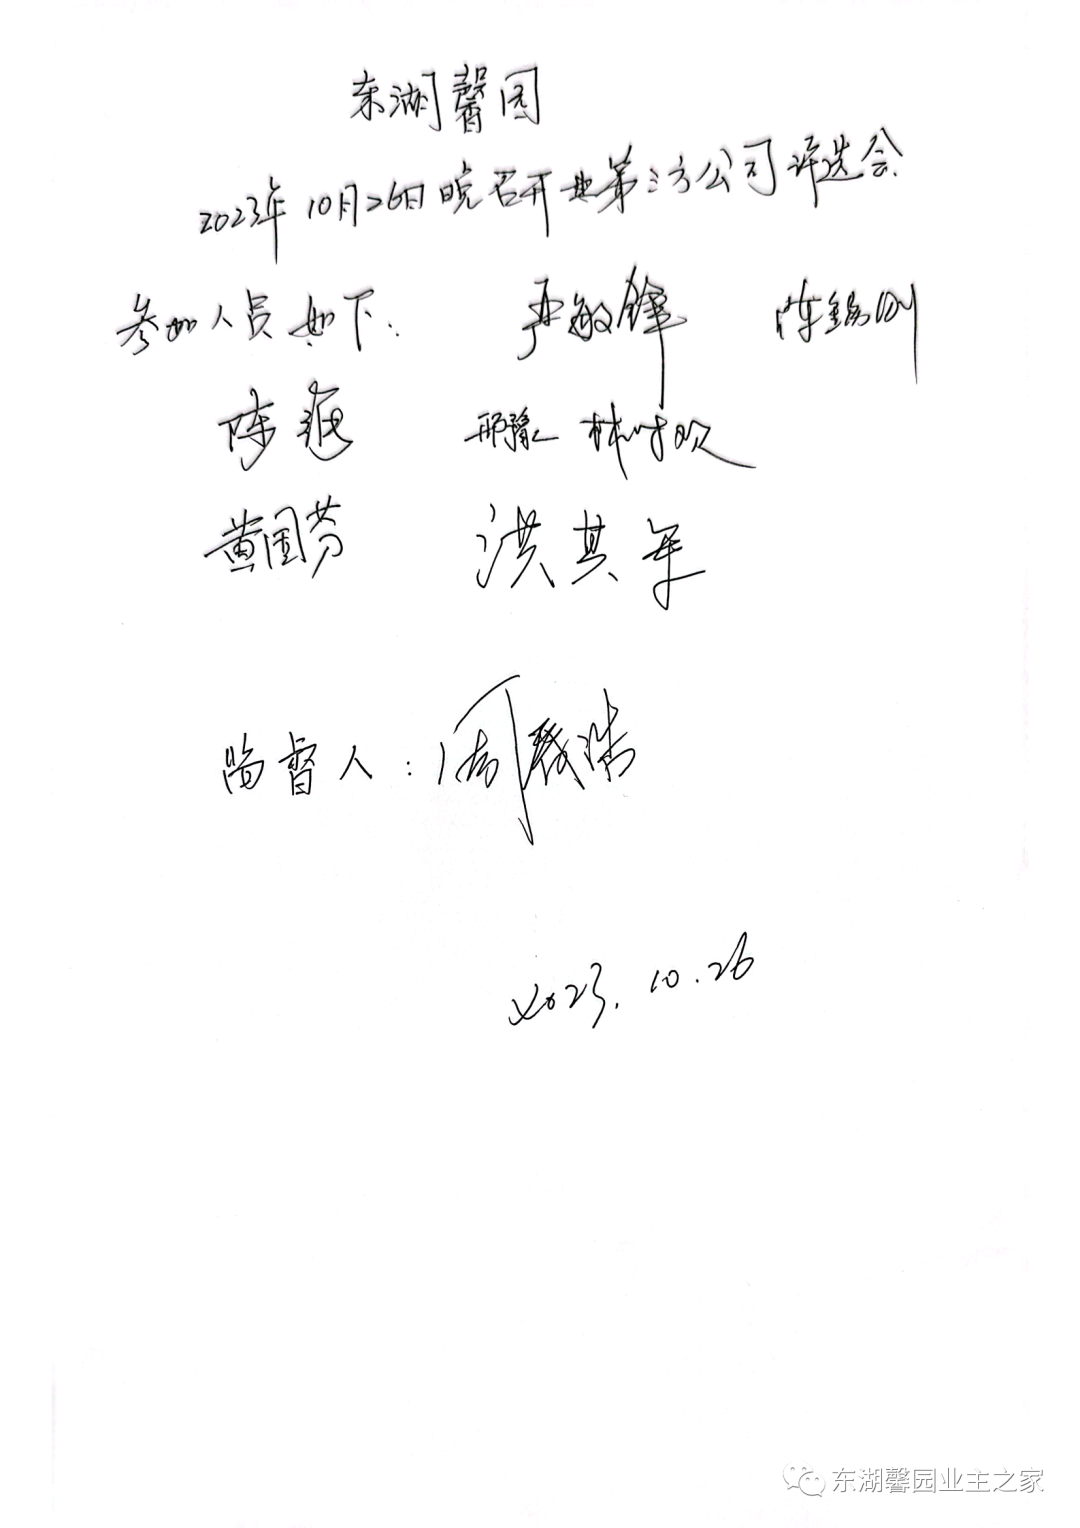 东湖馨园
2023年10月26日晚召开业第三方公司评选会
参加人员如下: 严敏锋 陈锡刚
陈 邢 林
黄国芬 洪其年
监督人: 周
2023.10.26
东湖馨园业主之家